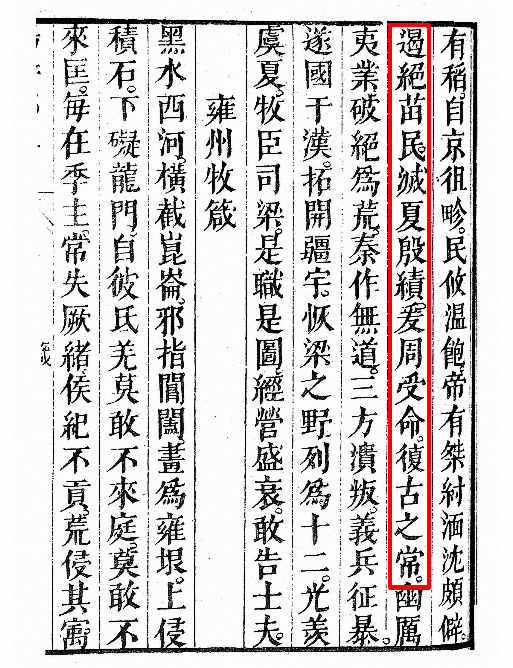 有稻。自京徂畛。民攸溫飽。帝有桀紂湎沈頗僻。
遏絕苗民。滅夏殷績。爰周受命。復古之常。幽厲
夷業破絕爲荒。秦作無道。三方潰叛。義兵征暴。
遂國于漢。拓開疆宇。恢梁之野。列爲十二。光羨
虞夏。牧臣司梁。是職是圖。經營盛衰。敢告士夫。
雍州牧箴
黑水西河。橫截崑崙。邪指閶闔。畫爲雍垠。上侵
積石。下礙龍門。自彼氐羌莫敢不來庭。莫敢不
來匡。每在季主。常失厥緒。侯紀不貢。荒侵其寓